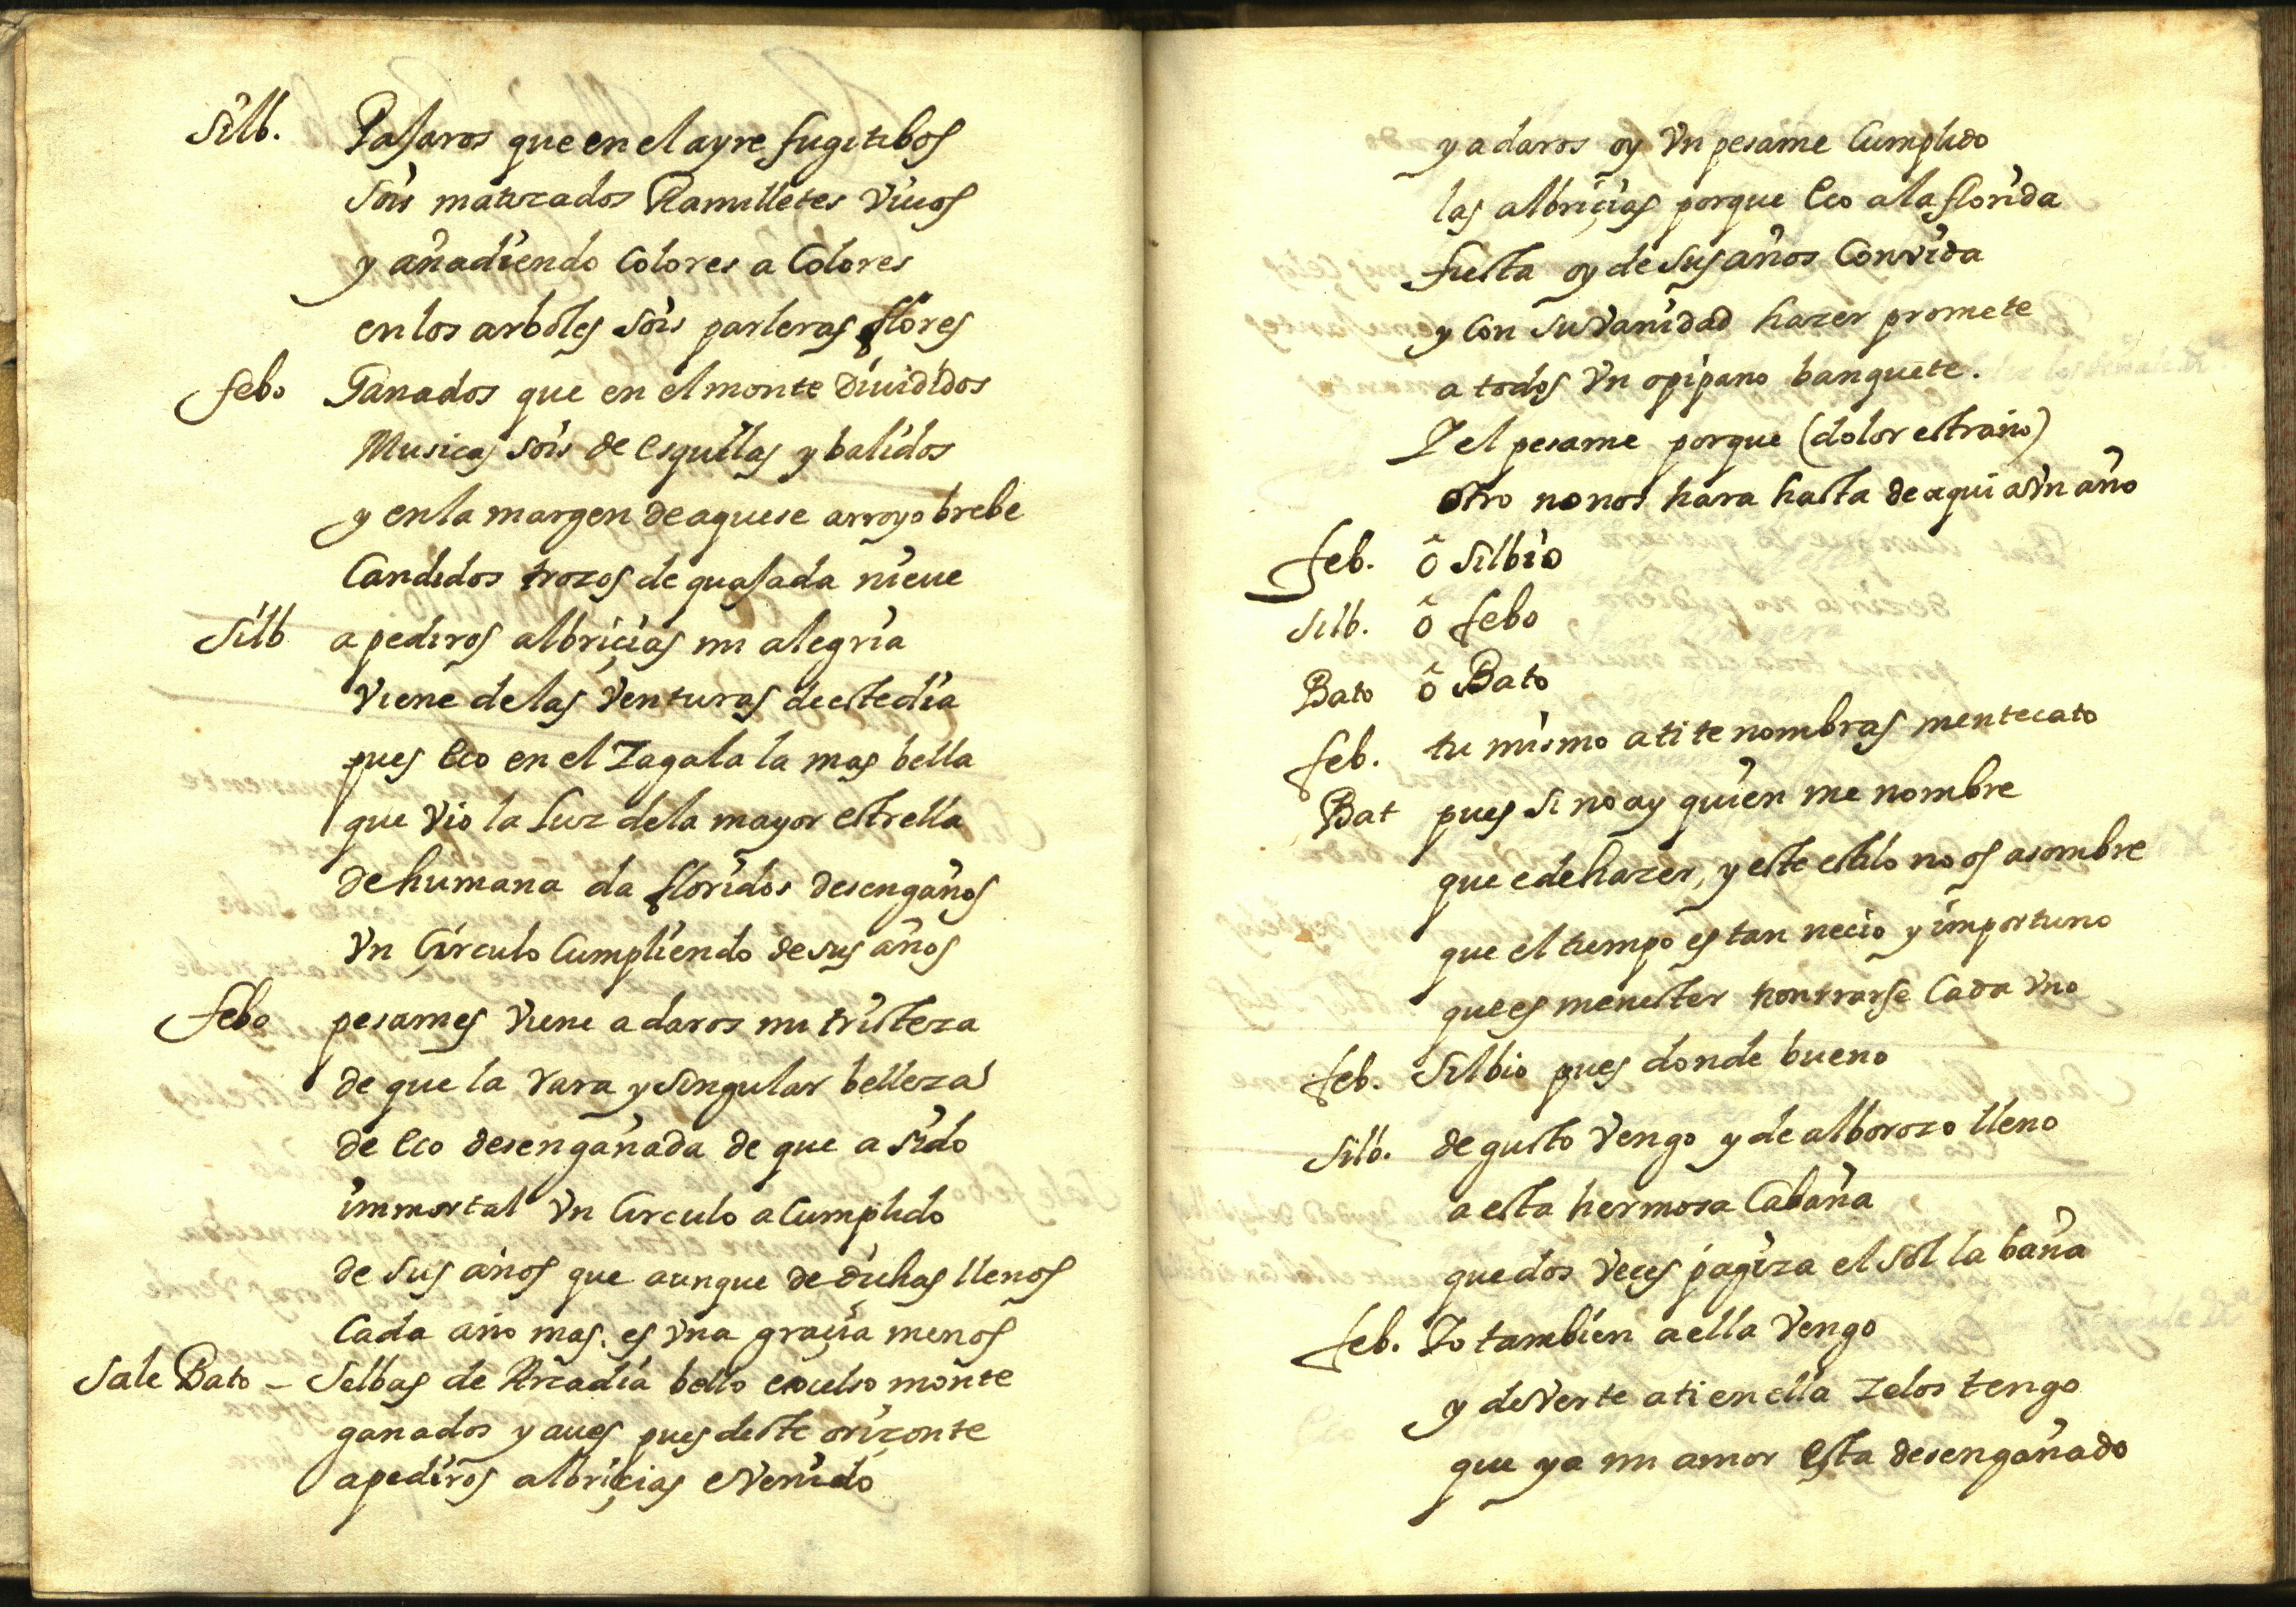 Silb. Pasaros que en el ayre fugitibos
sois matizados Ramilletes viuos
y añadiendo Colores a Colores
en los arboles sois parleras flores
febo Ganados que en el monte diuididos
Musicas sois de esquilas y balidos
y en la margen de aquese arroyo brebe
Candidos trozos de quasada nieue
Silb a pediros albricias mi alegria
viene de las venturas de este dia
pues Eco en el Zagala la mas bella
que vio la Luz de la mayor estrella
de humana da floridos desengaños
vn Circulo Cumpliendo de sus años
febo pesames viene a daros mi tristeza
de que la rara y singular belleza
de Eco desengañada de que a sido
immortal vn Circulo a Cumplido
de sus años que aunque de dichas llenos
Cada año mas, es vna graçia menos
Sale Bato – Selbas de Arcadia bello exçelso monte
ganados y aues pues deste orizonte
a pediros albriçias e venido
y a daros oy vn pesame Cumplido
las albriçias porque Eco a la florida
fiesta oy de sus años Convida
y Con su vanidad hazer promete
a todos vn opiparo banquete.
Y el pesame porque (dolor estraño)
otro no nos hara hasta de aqui a vn año
feb. ô Silbio
Silb. ô febo
Bato ô Bato
feb. tu mismo a ti te nombras mentecato
Bat pues si no ay quien me nombre
que e de hazer, y este estilo no os asombre
que el tiempo es tan necio y importuno
que es menester honrrarse Cada vno
feb. Silbio pues donde bueno
Silb. de gusto vengo y de alborozo lleno
a esta hermosa Cabaña
que dos veces pagiza el sol la baña
feb. Yo tambien a ella vengo
y de verte a ti en ella zelos tengo
que ya mi amor esta desengañado